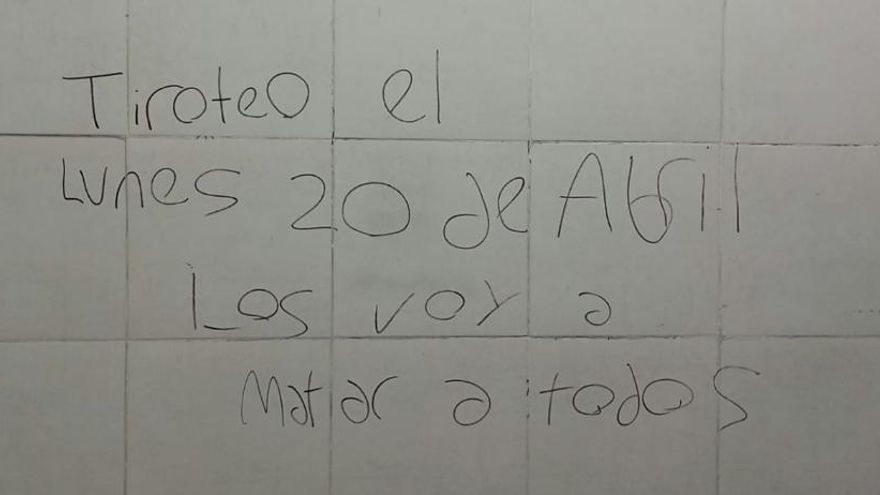 Tiroteo el
Lunes 20 de Abril
Los voy a
Matar a todos